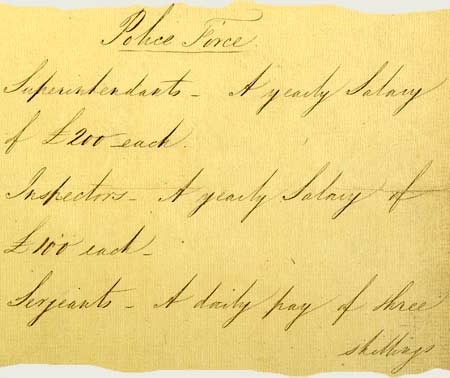 Police Force
Superintendants - A yearly Salary
of £200 each.
Inspectors - A yearly Salary of
£100 each -
Serjeants - A daily pay of three
shillings